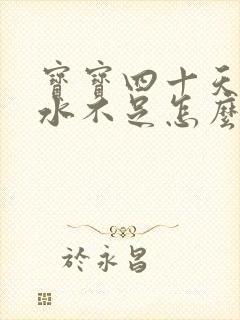 寶寶四十天
水不足怎麼
於永昌